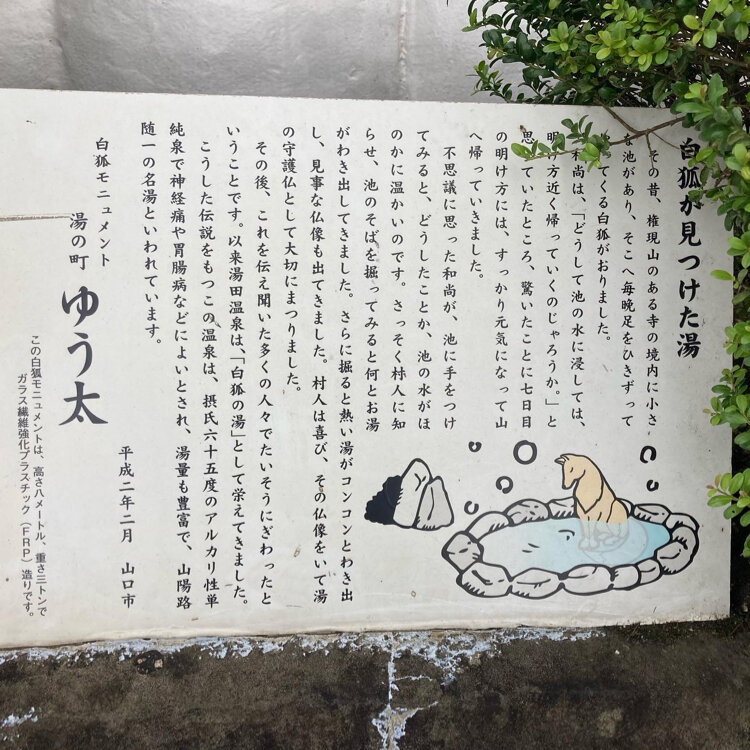 白狐が見つけた湯
その昔、権現山のある寺の境内に小さ
な池があり、そこへ毎晩足をひきずって
てくる白狐がおりました。
和尚は、「どうして池の水に浸しては、
明け方近く帰っていくのじゃろうか。」と
思っていたところ、驚いたことに七日目
の明け方には、すっかり元気になって山
へ帰っていきました。
不思議に思った和尚が、池に手をつけ
てみると、どうしたことか、池の水がほ
のかに温かいのです。さっそく村人に知
らせ、池のそばを掘ってみると何とお湯
がわき出してきました。さらに掘ると熱い湯がコンコンとわき出
し、見事な仏像も出てきました。村人は喜び、その仏像をいで湯
の守護仏として大切にまつりました。
その後、これを伝え聞いた多くの人々でたいそうにぎわったと
いうことです。以来湯田温泉は、「白狐の湯」として栄えてきました。
こうした伝説をもつこの温泉は、摂氏六十五度のアルカリ性単
純泉で神経痛や胃腸病などによいとされ、湯量も豊富で、山陽路
随一の名湯といわれています。
平成二年二月 山口市
白狐モニュメント
湯の町 ゆう太
この白狐モニュメントは、高さ八メートル、重さ三トンで
ガラス繊維強化プラスチック（FRP）造りです。